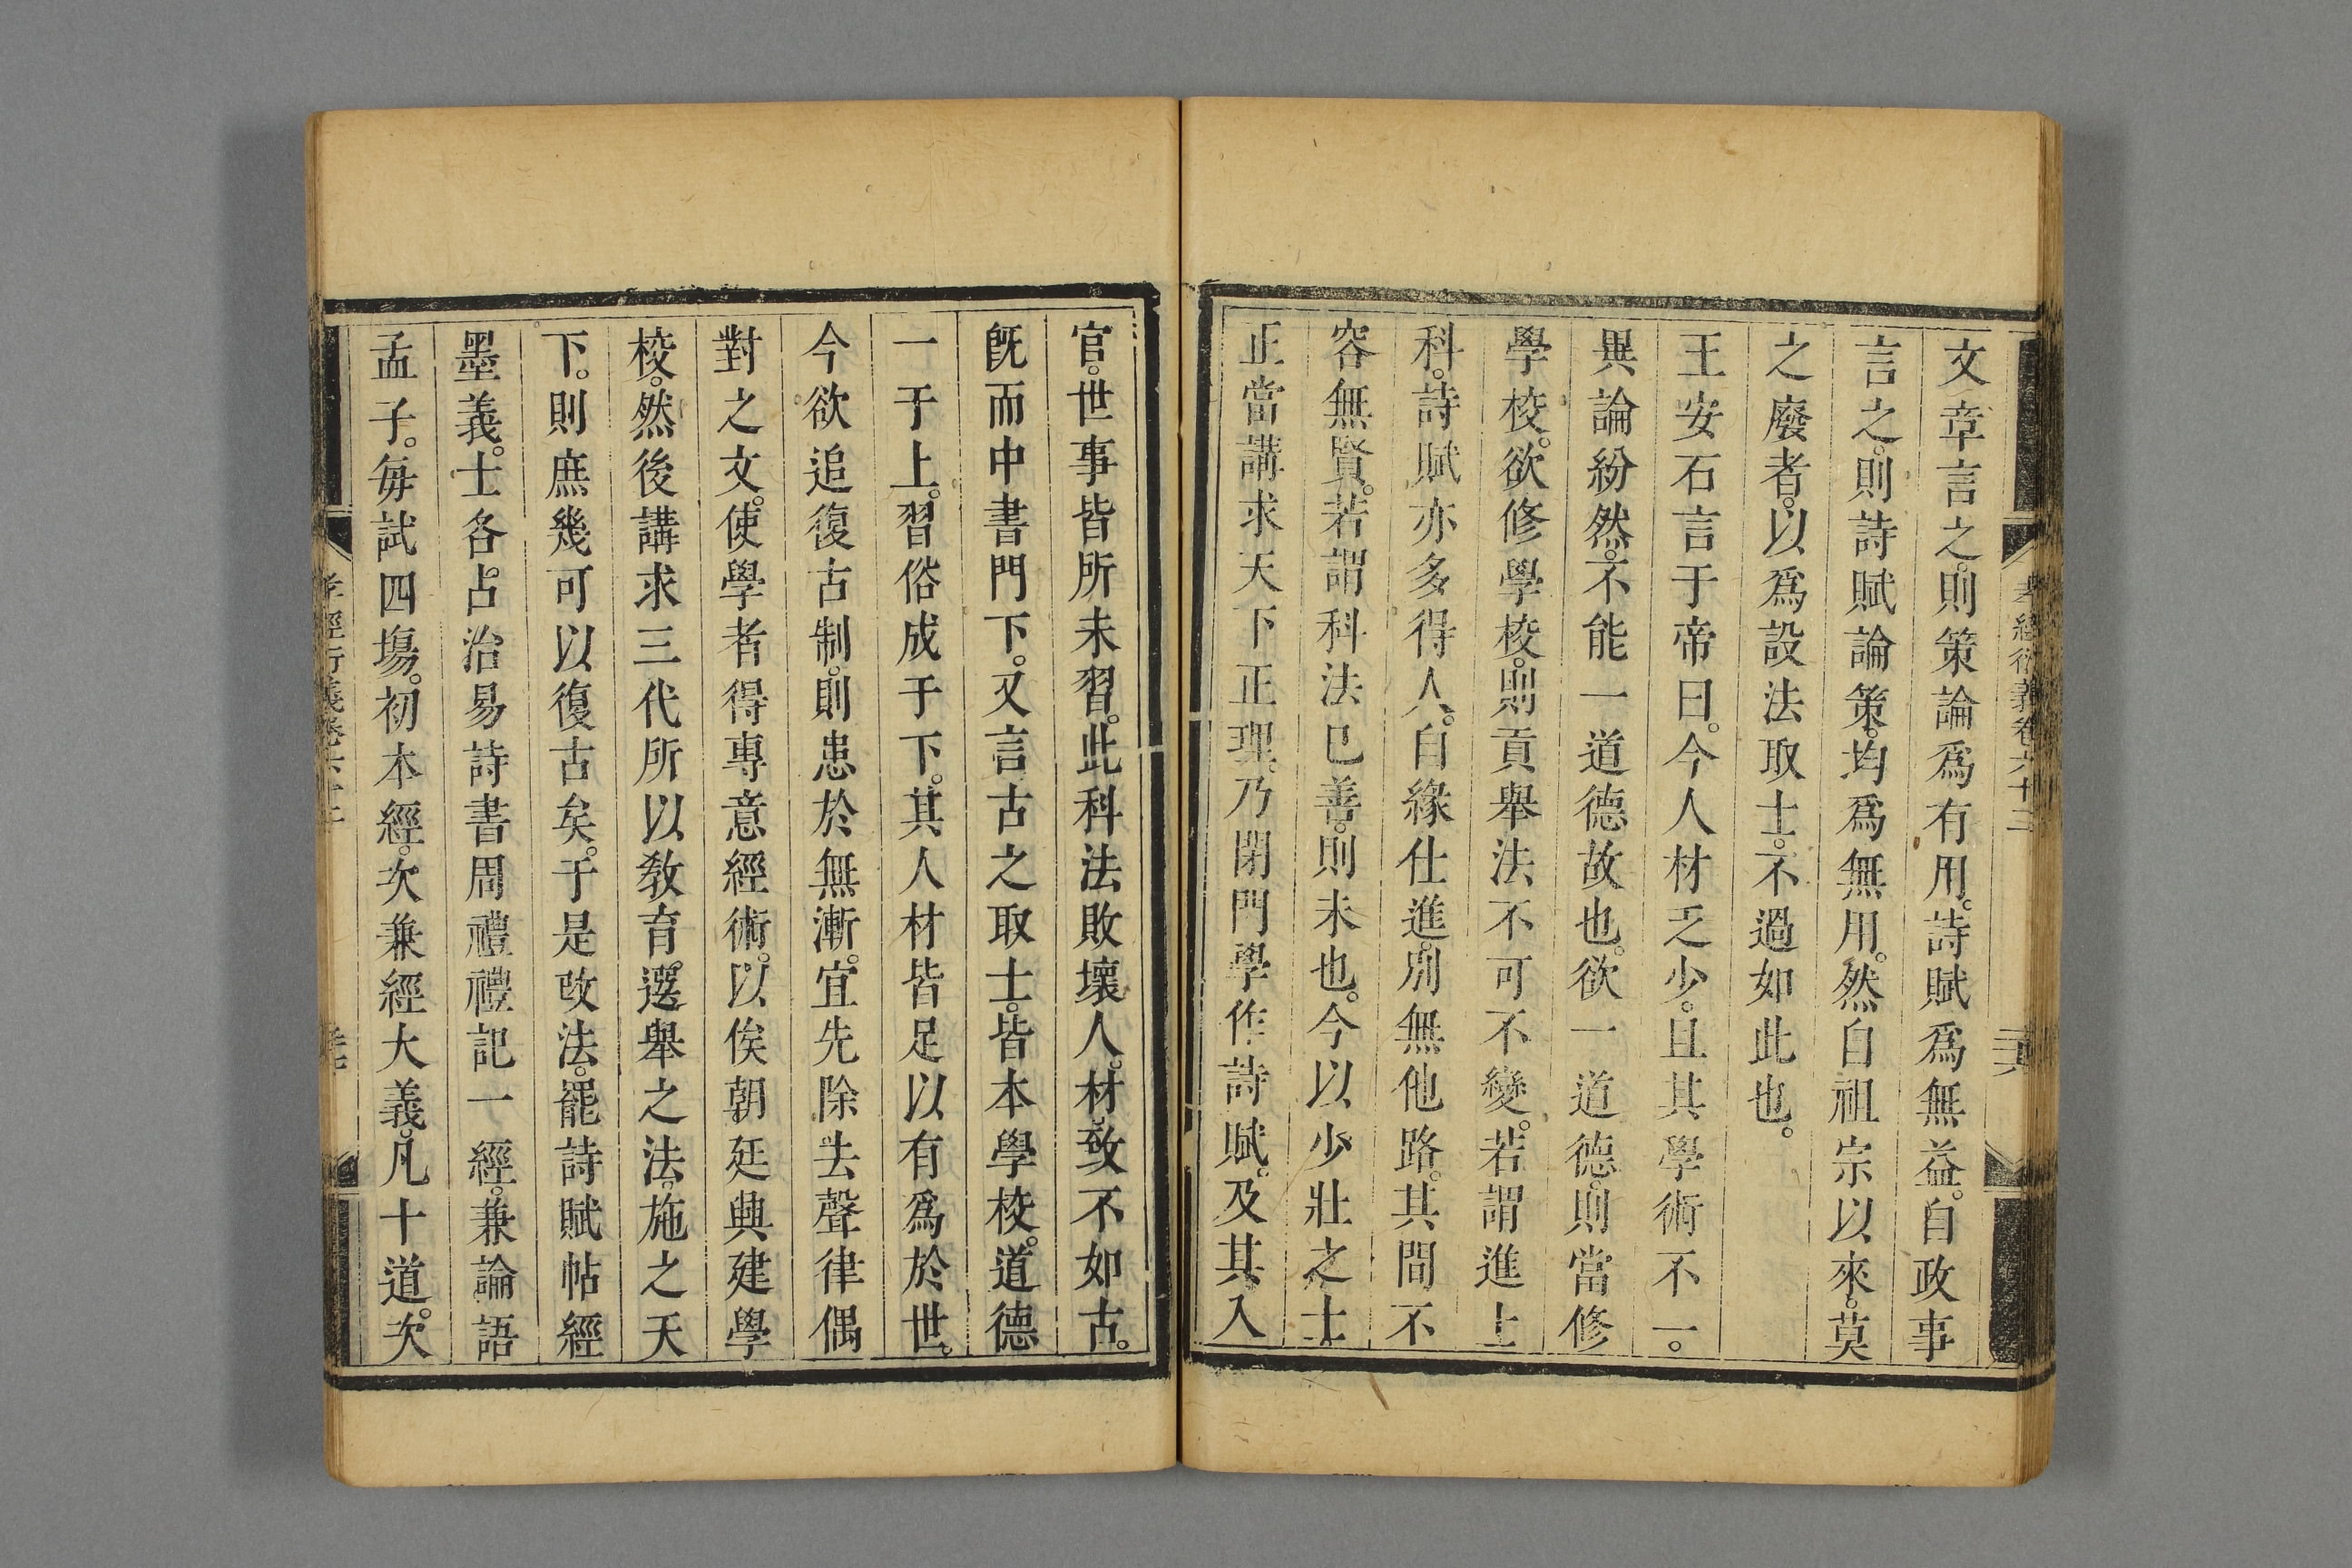 孝經衍義卷六十三
文章言之。則策論爲有用。詩賦爲無益。自政事
言之。則詩賦論策。均爲無用。然自祖宗以來。莫
之廢者。以爲設法取士。不過如此也。
王安石言于帝曰。今人材乏少。且其學術不一。
異論紛然。不能一道德故也。欲一道德。則當修
學校。欲修學校。則貢舉法不可不變。若謂進士
科。詩賦亦多得人。自緣仕進。別無他路。其間不
容無賢。若謂科法已善。則未也。今以少壯之士
正當講求天下正理。乃閉門學作詩賦。及其入
官。世事皆所未習。此科法敗壞人。材致不如古。
旣而中書門下。又言古之取士。皆本學校。道德
一于上。習俗成于下。其人材皆足以有爲於世。
今欲追復古制。則患於無漸。宜先除去聲律偶
對之文。使學者得專意經術。以俟朝廷興建學
校。然後講求三代所以敎育。選舉之法。施之天
下。則庶幾可以復古矣。于是改法。罷詩賦帖經
墨義。士各占治易詩書周禮禮記一經。兼論語
孟子。每試四塲。初本經。次兼經大義。凡十道。次
孝經衍義卷六十三